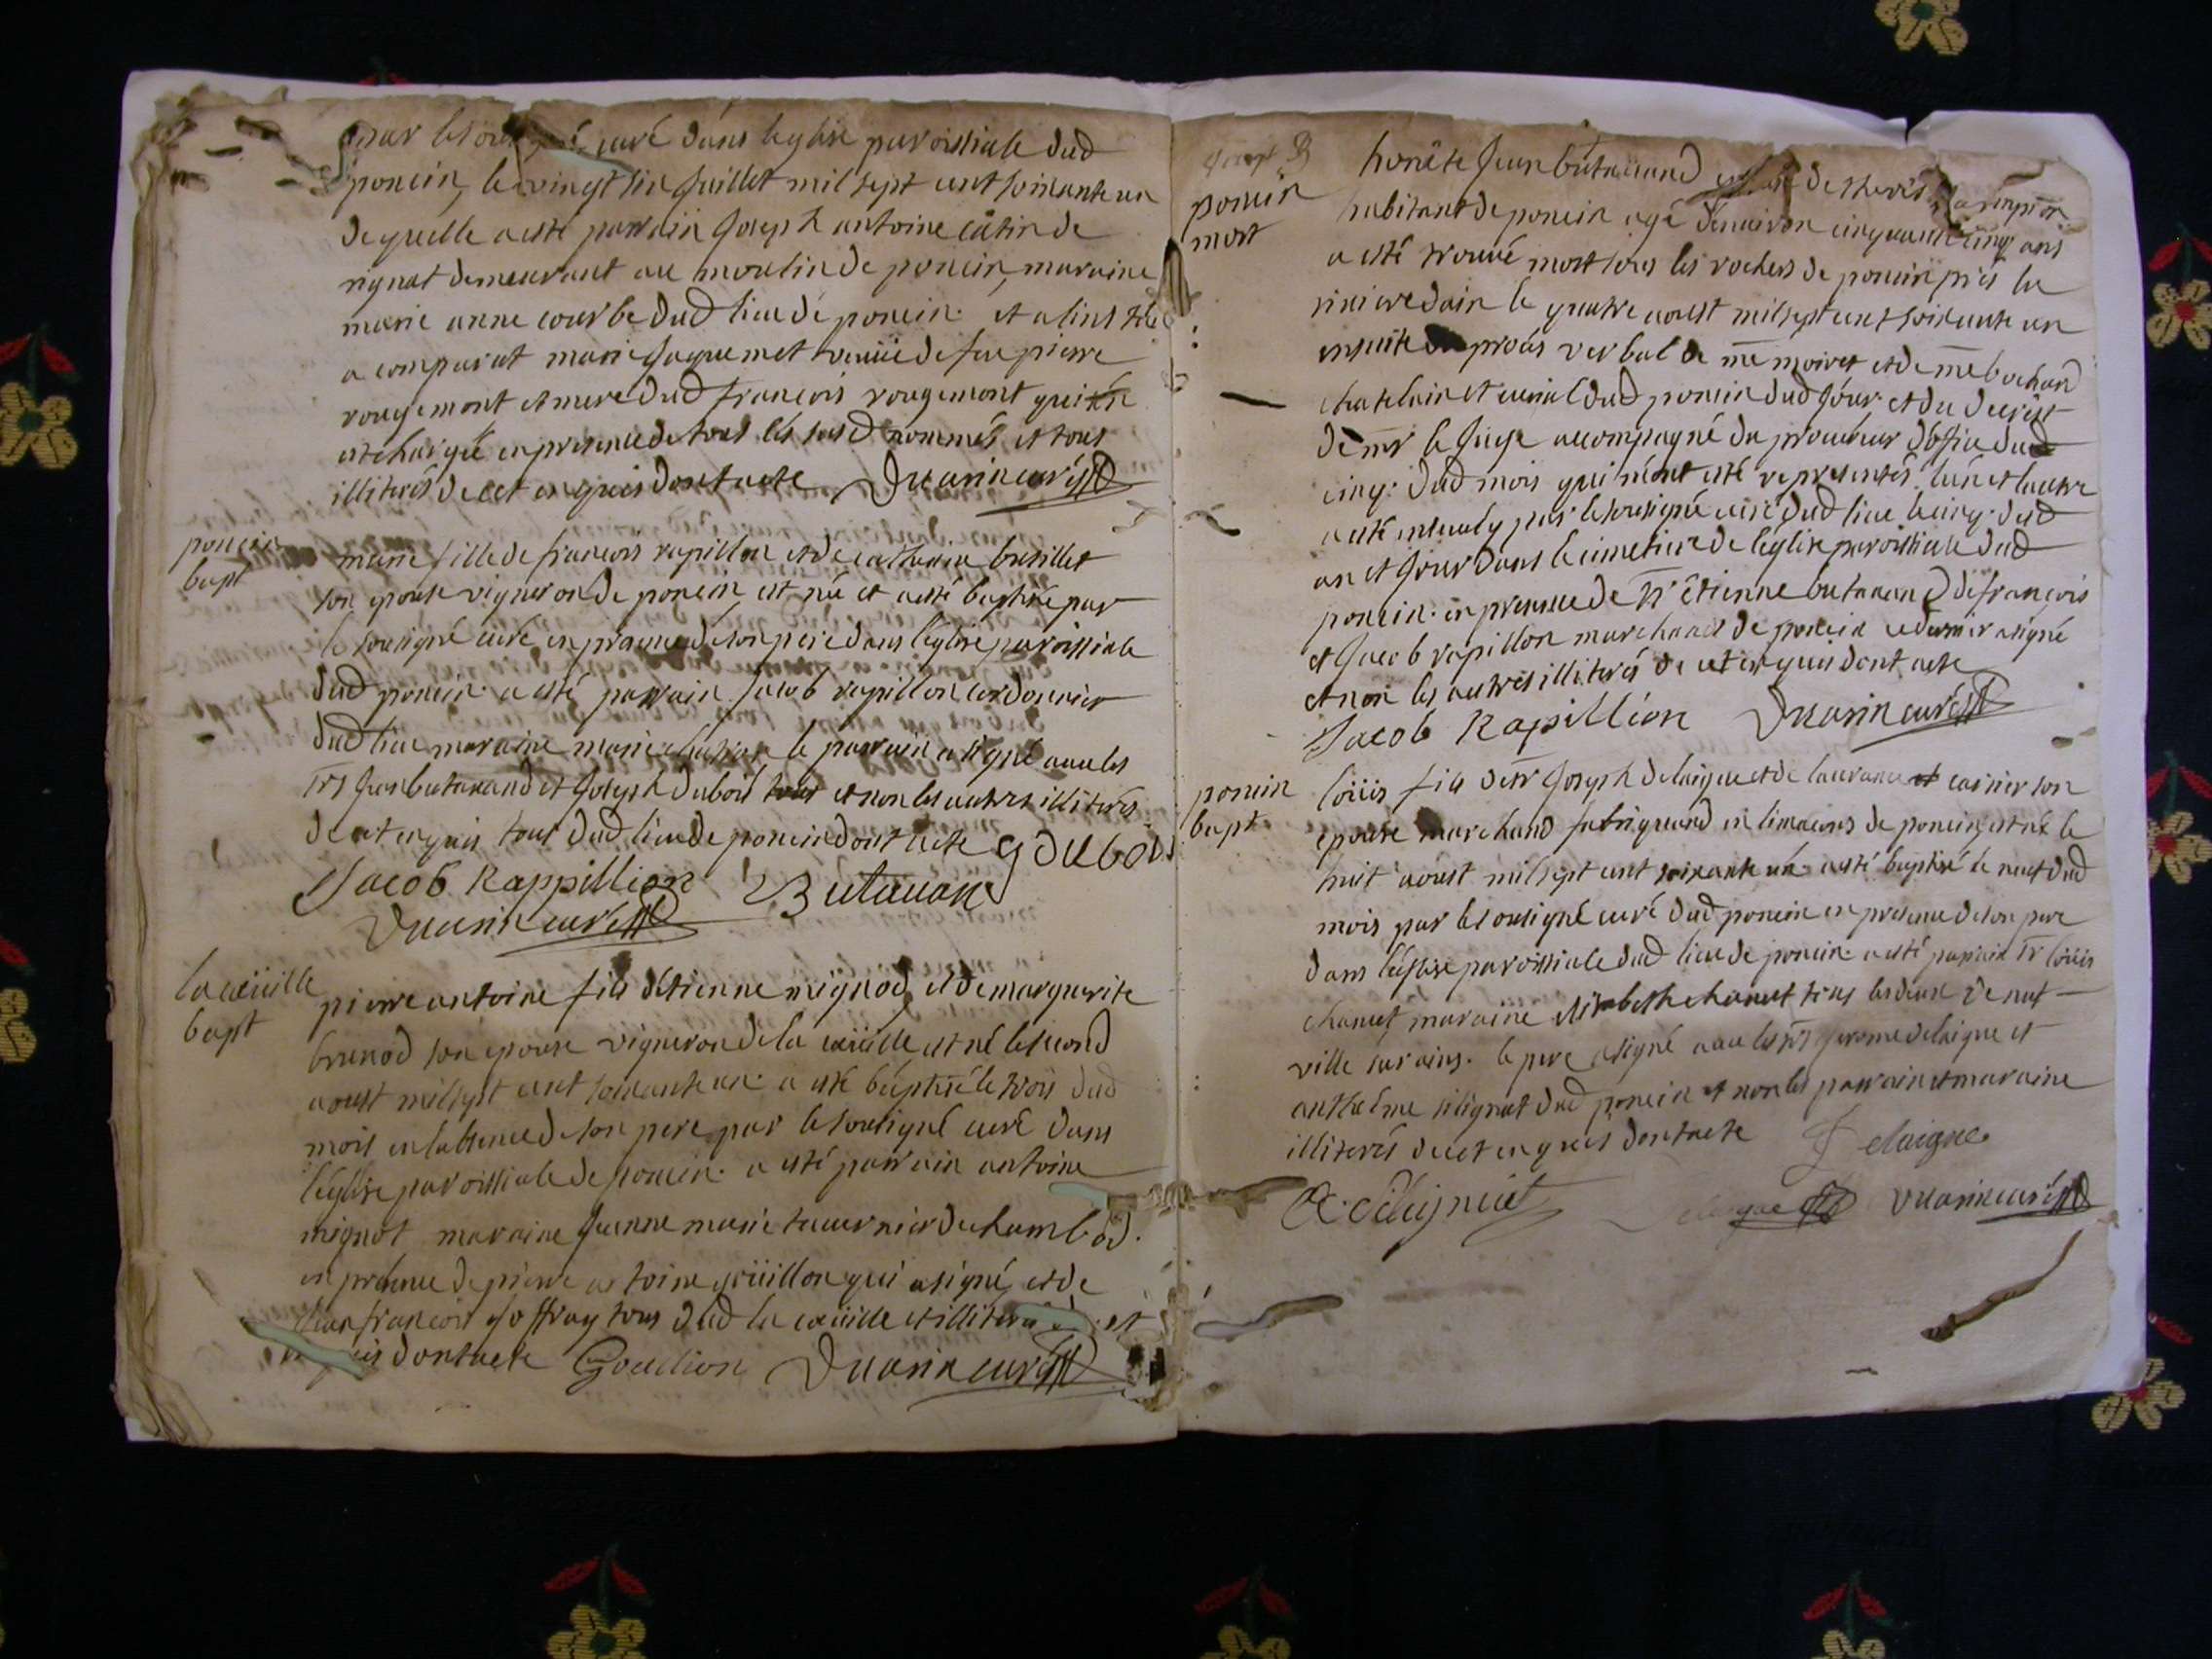 par le curé dans leglise paroissiale dud
poncin, le vingt six juillet mil sept cent soixante un
de quelle a esté parrain joseph antoine de
rignat demeurant au moulin de poncin, maraine
marie anne courbe dud lieu de poncin. et
a comparut marie jaquemet veuüe de feu pierre
rougemont et mere dud francois rougemont qui
en presence de tous les susd nommés et tous
illiterés de cet enquis dont acte Duarin curé
poncin
bapt
marie fille de francois rapillon et de catherine
son epouse vigneron de poncin est née et a esté baptisée par
le sousigné curé en presence de son pere dans leglise paroissiale
dud poncin. a esté parrain jacob rapillon cordonnier
dud lieu maraine marie le parrain a signé avec les
srs jean butavand et joseph dubois et non les autres illiterés
de cet enquis tous dud lieu de poncin dont acte g dubois
Jacob Rappillion Butavan
Duarin curé
la cuëille
bapt
pierre antoine fils detienne mignod et de marguerite
brunod son epouse vigneron de la cuëille est né le second
aoust mil sept cent soixante un. a esté baptisé le trois dud
mois en labsence de son pere par le sousigné curé dans
léglise paroissiale de poncin. a esté parrain antoine
mignot maraine jeanne marie tournier de chambod.
en presence de pierre antoine qui a signé, et de
jean francois joffray tous dud la cuëille et illiterés
dont acte Goullion Duarin curé
poncin
mort
honête jean butavand
habitant de poncin agé denviron cinquante cinq ans
a esté trouvé mort sous les rochers de poncin près la
riviere dain le quatre aoust mil sept cent soixante un
ensuite procès verbal de me moiret et de me bochard
chatelain et curial dud poncin dud jour. et du decret
de mr le juge accompagné du procureur doffice du
cinq. dud mois qui mont esté representés lun et lautre
a esté par le sousigné curé dud lieu le cinq. dud
an et jour dans le cimetiere de léglise paroissiale dud
poncin. en presence de sr étienne butavand de francois
et jacob rapillon marchand de poncin ce dernier a signé
et non les autres illiterés de cet enquis dont acte
Jacob Rapillion Duarin curé
poncin
bapt
loüis fils de sr joseph delaigue et de laurance son
epouse marchand fabriquand en de poncin, est né le
huit aoust mil sept cent soixante un. a esté baptisé le neuf dud
mois par le sousigné curé dud poncin en presence de son pere
dans léglise paroissiale dud lieu de poncin. a esté parrain sr loüis
chanut maraine elisabeth chanut tous les deux de neuf
ville sur ains. le pere a signé avec les srs jerome delaigue et
anthelme silignat dud poncin et non les parrain et maraine
illiterés de cet enquis dont acte J delaigue
Duarin curé